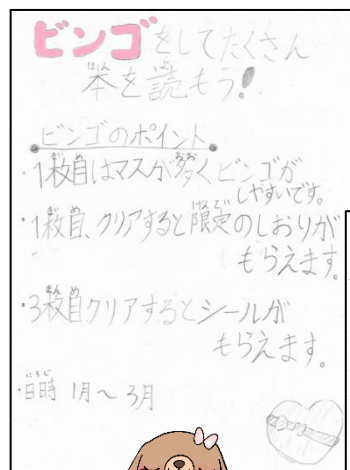 ビンゴをしてたくさん
本を読もう!
ビンゴのポイント
・1枚目はマスが多くビンゴが
しやすいです。
・1枚目、クリアすると限定のしおりが
もらえます。
・3枚目クリアするとシールが
もらえます。
・日時 1月〜3月